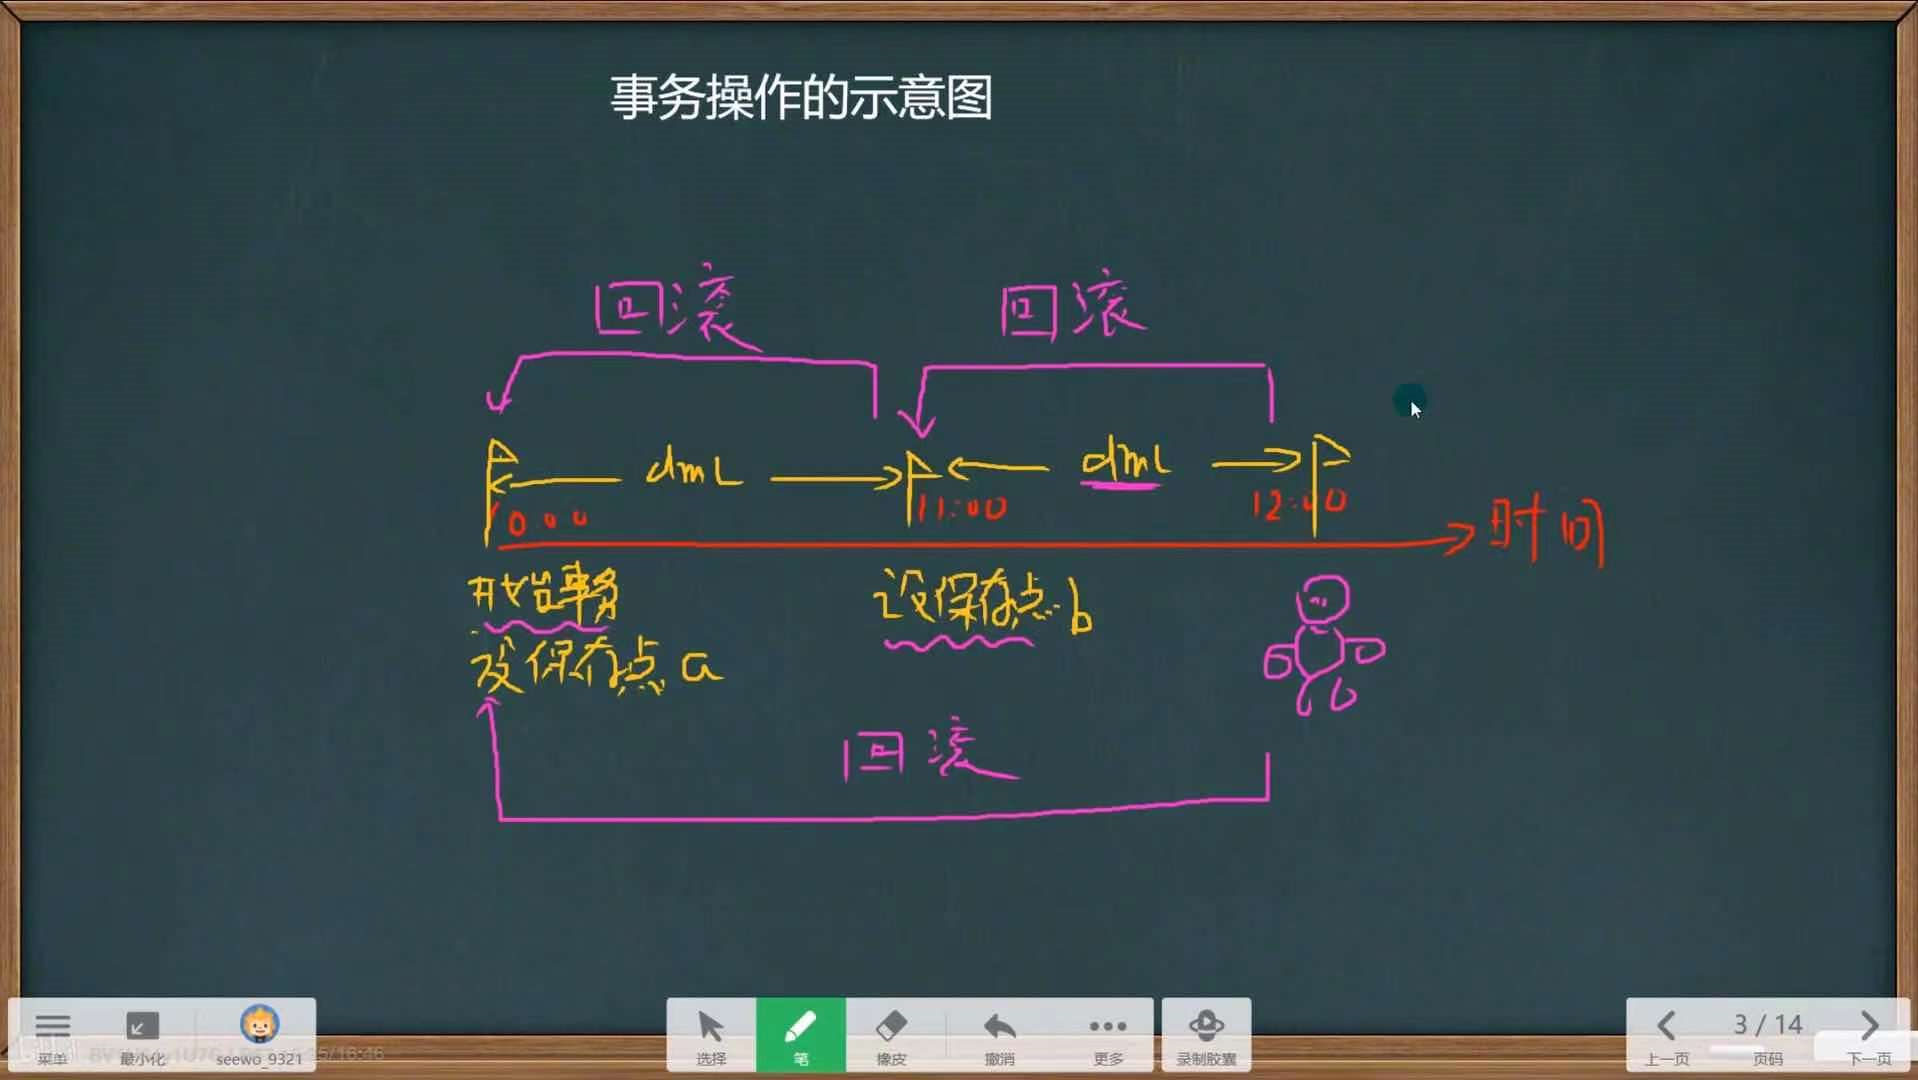 事务操作的示意图
回滚 回滚
dml dml
10:00 11:00 12:00
时间
开始事务 设保存点 b
设保存点 a
回滚
菜单 最小化 seewo_9321 选择 笔 橡皮 撤消 更多 录制胶囊 上一页 3 / 14 页码 下一页